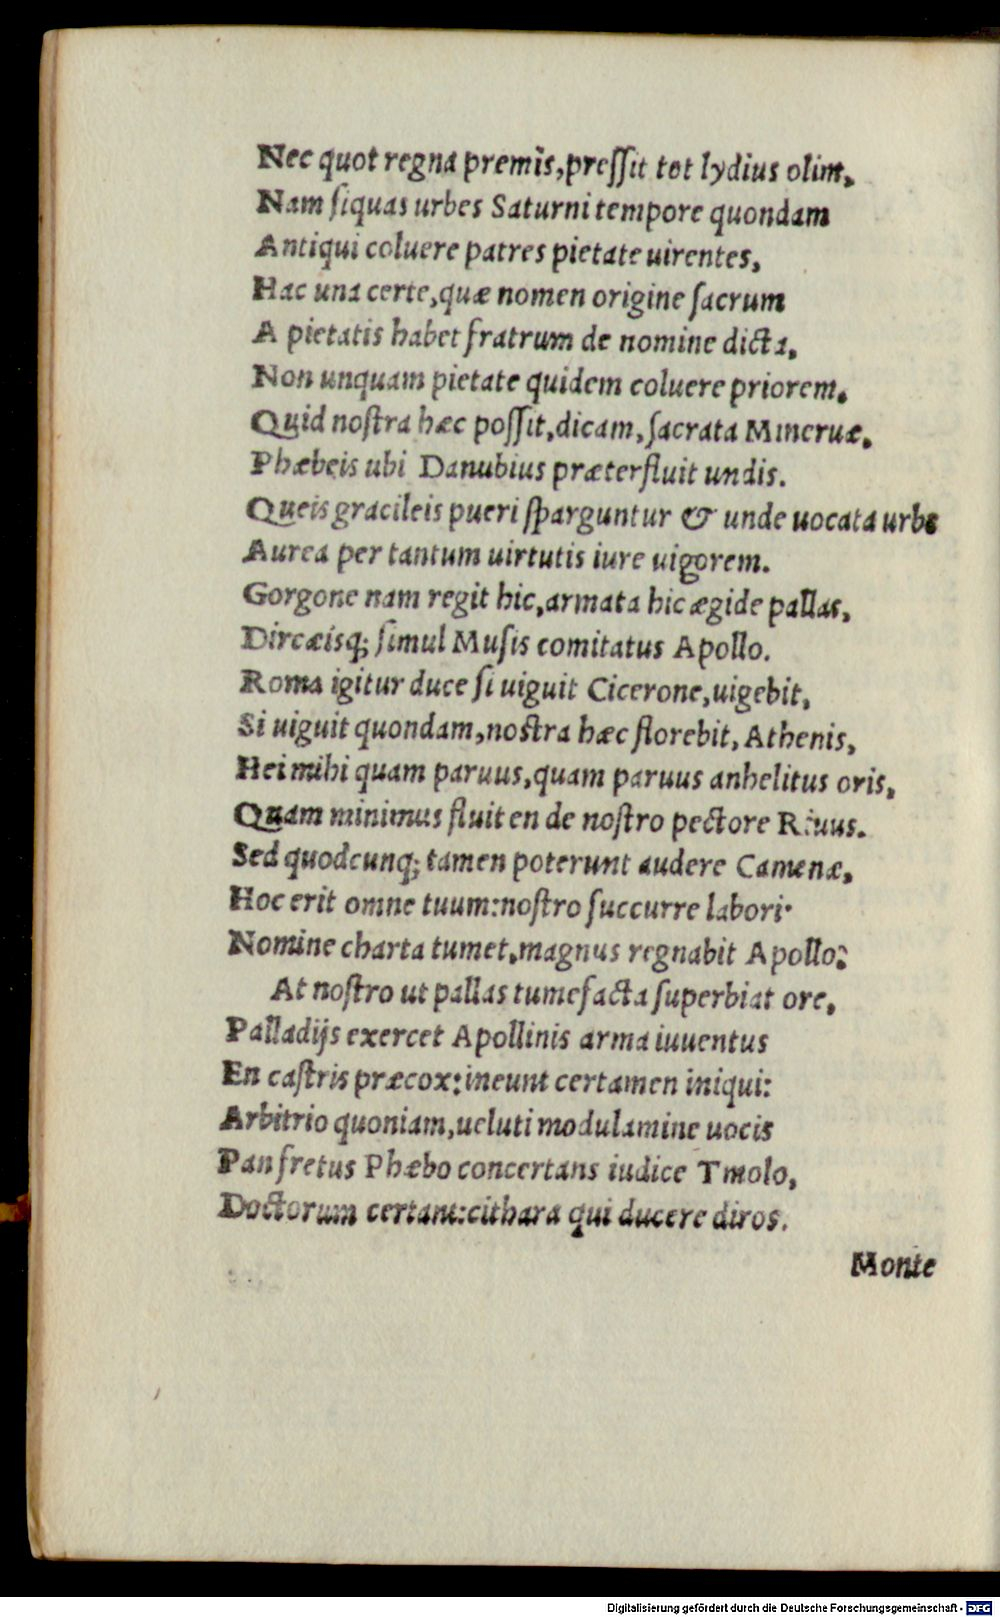 Nec quot regna premis, pressit tot lydius olim,
Nam siquas urbes Saturni tempore quondam
Antiqui coluere patres pietate uirentes,
Hac una certe, quæ nomen origine sacrum
A pietatis habet fratrum de nomine dicta,
Non unquam pietate quidem coluere priorem.
Quid nostra hæc possit, dicam, sacrata Mineruæ.
Phæbeis ubi Danubius præterfluit undis.
Queis gracileis pueri sparguntur & unde uocata urbs
Aurea per tantum uirtutis iure uigorem.
Gorgone nam regit hic, armata hic ægide pallas,
Dircæisq; simul Musis comitatus Apollo.
Roma igitur duce si uiguit Cicerone, uigebit,
Si uiguit quondam, nostra hæc florebit, Athenis,
Hei mihi quam paruus, quam paruus anhelitus oris,
Quam minimus fluit en de nostro pectore Riuus.
Sed quodcunq; tamen poterunt audere Camenæ,
Hoc erit omne tuum: nostro succurre labori·
Nomine charta tumet, magnus regnabit Apollo:
At nostro ut pallas tumefacta superbiat ore,
Palladijs exercet Apollinis arma iuuentus
En castris præcox: ineunt certamen iniqui:
Arbitrio quoniam, ueluti modulamine uocis
Pan fretus Phæbo concertans iudice Tmolo,
Doctorum certant: cithara qui ducere diros.
Monte
Digitalisierung gefördert durch die Deutsche Forschungsgemeinschaft - DFG